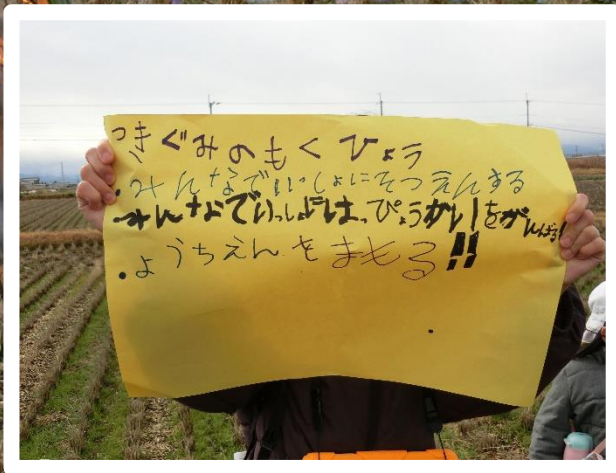 つきぐみのもくひょう
・みんなでいっしょにそつえんする
みんなでいっしょにはっぴょうかいをがんばる!
・ようちえんをまもる!!